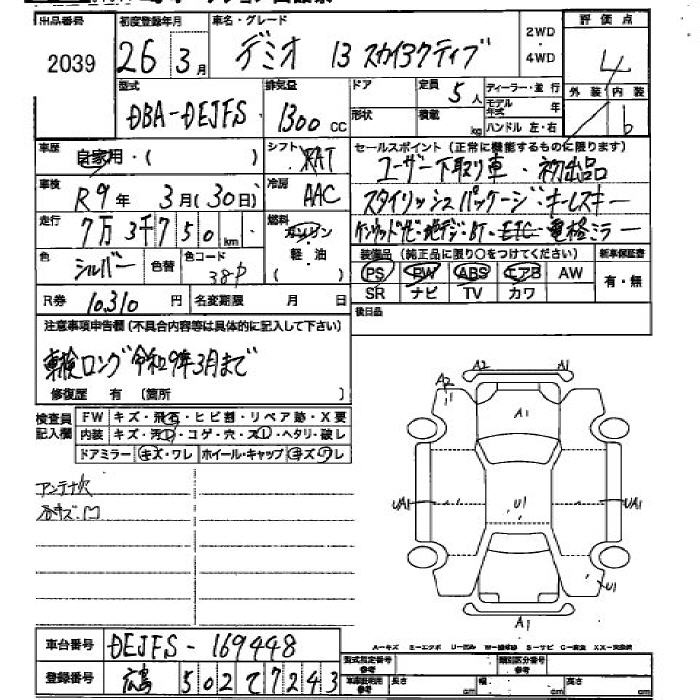 出品番号 初度登録年月 車名・グレード 2WD・4WD 評価点
2039 26年 3月 デミオ 13 スカイアクティブ 4
型式 排気量 ドア 定員 5人 ディーラー・並行 外装 内装
DBA-DEJFS 1300cc 形状 積載 kg モデル年式 年 ハンドル 左・右 b
車歴 自家用・( ) シフト FAT セールスポイント（正常に機能するものに限ります）
ユーザー下取り車・初出品
車検 R9年 3月(30日) 冷房 AAC スタイリッシュパッケージ・キーレスキー
走行 7万3千750km 燃料 ガソリン・軽・油( ) 地デジ・BT・ETC・電格ミラー
色 シルバー 色替 色コード 38P 装備品（純正品に限り○をつけてください） 新車保証書
PS PW ABS エアB AW 有・無
SR ナビ TV カワ
R券 10,310円 名変期限 月 日 後日品
注意事項申告欄（不具合内容等は具体的に記入して下さい）
車検ロング令和9年3月まで
修復歴 有 〔箇所 〕
検査員記入欄 FW キズ・飛石・ヒビ割・リペア跡・X要
内装 キズ・汚レ・コゲ・穴・スレ・ヘタリ・破レ
ドアミラー キズ・ワレ ホイール・キャップ キズ・ワレ
アンテナ欠
小キズ・凹
A2 A1
A2
A1
UA1 U1 UA1
U1
A1
A-キズ E-エクボ U-凹み W-補修跡 S-サビ C-腐食 XX-交換済
車台番号 DEJFS-169448
型式指定番号 参考 類別区分番号 参考
登録番号 広島 502 て 7243
車庫証明用 参考 長さ cm 幅 cm 高さ cm